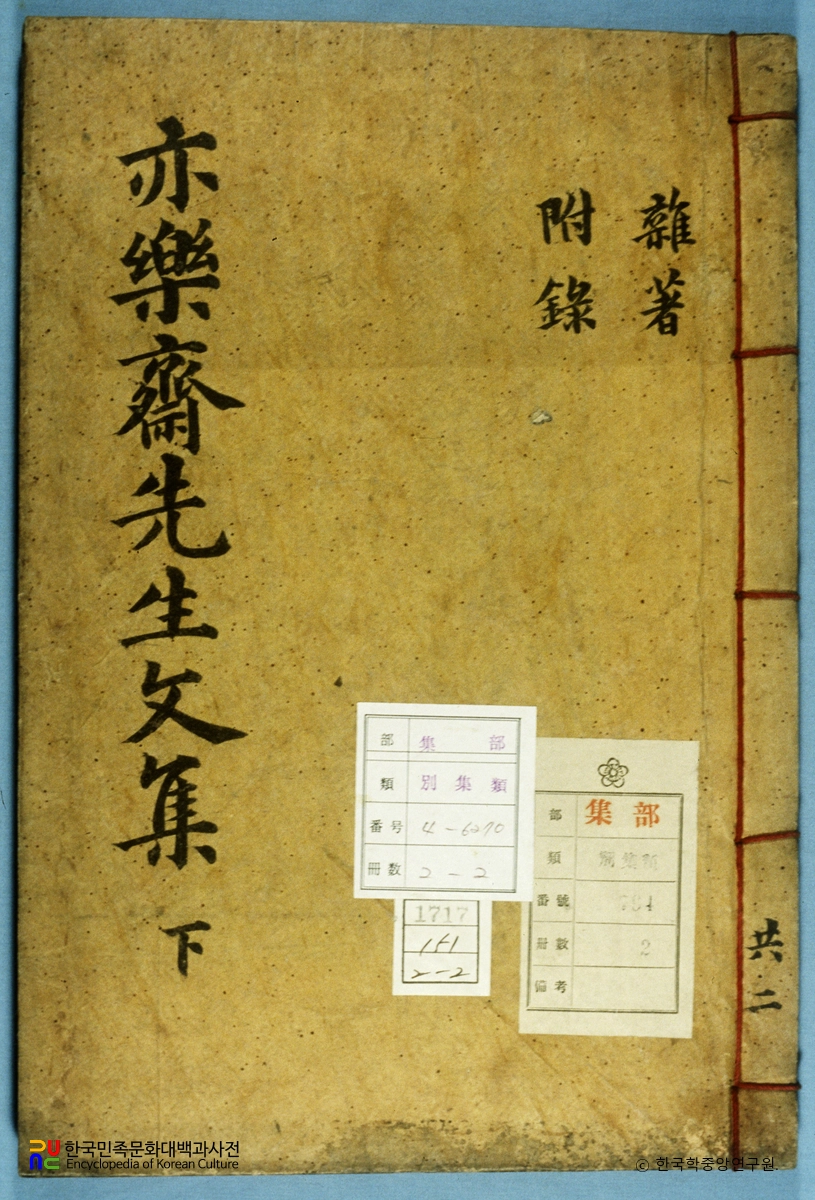 亦樂齋先生文集 下
雜著
附錄
共二
部 集部
類 別集類
番号 4-6270
冊數 2-2
1717
151
2-2
部 集部
類 別集類
番號
冊數 2
備考
한국민족문화대백과사전
Encyclopedia of Korean Culture
© 한국학중앙연구원.